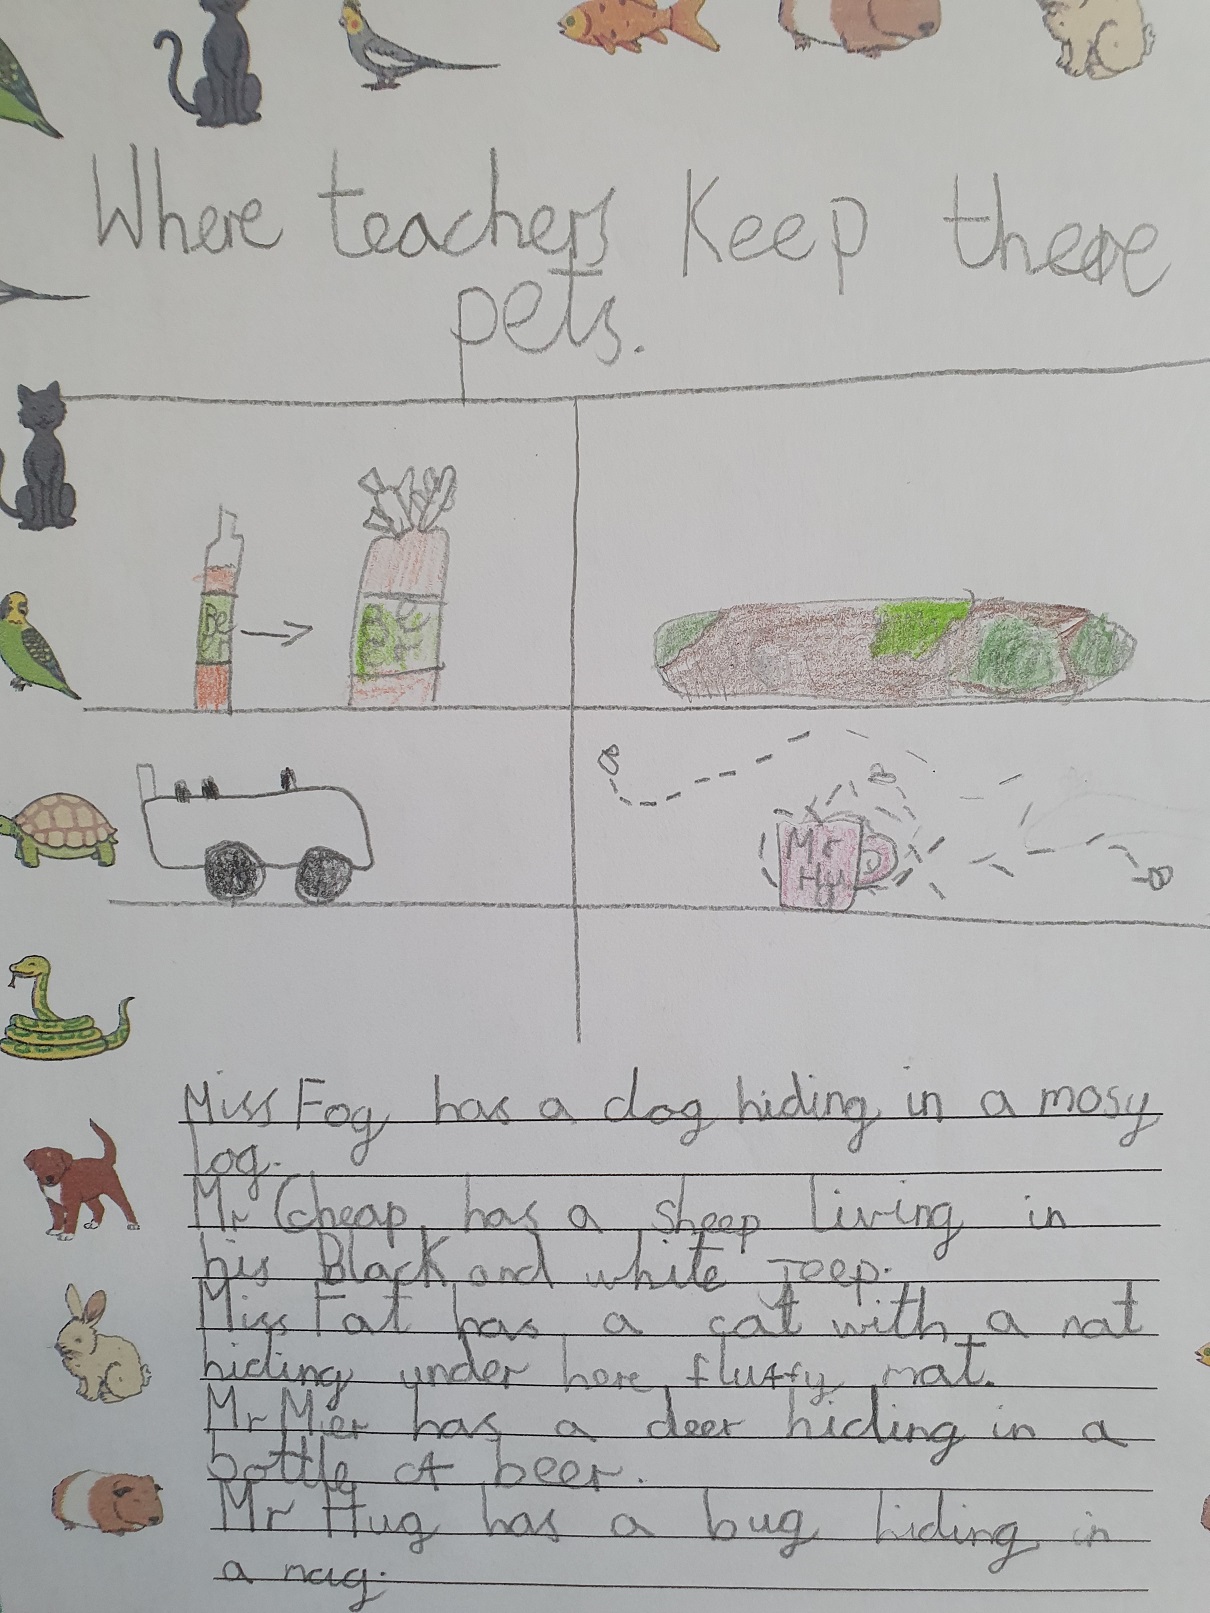 Where teachers Keep there
pets.
Be
er
Be
er
Mr
Hug
Miss Fog has a dog hiding in a mosy
log.
Mr Cheap has a sheep living in
his Black and white Jeep.
Miss Fat has a cat with a nat
hiding under here fluffy mat.
Mr Mier has a deer hiding in a
bottle of beer.
Mr Hug has a bug hiding in
a mug.